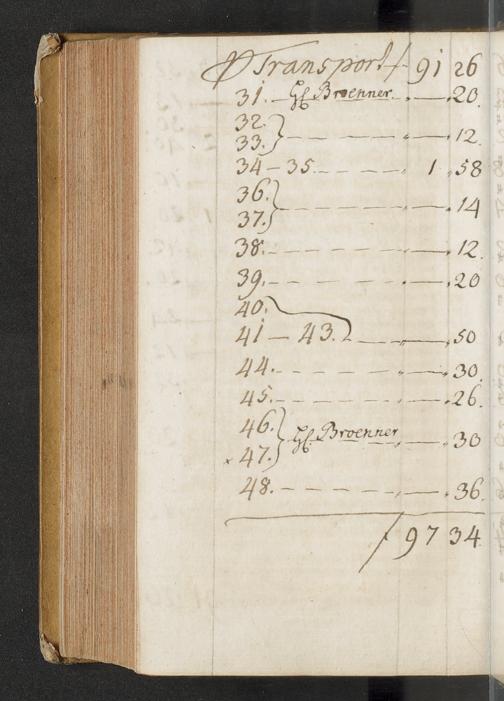 Transport 91 26
31. Broenner. 20.
32.
33. 12.
34 – 35. 1. 58
36.
37. 14
38. 12.
39. 20
40.
41 – 43. 50
44. 30.
45. 26.
46.
Broenner 30
× 47.
48. 36.
97 34